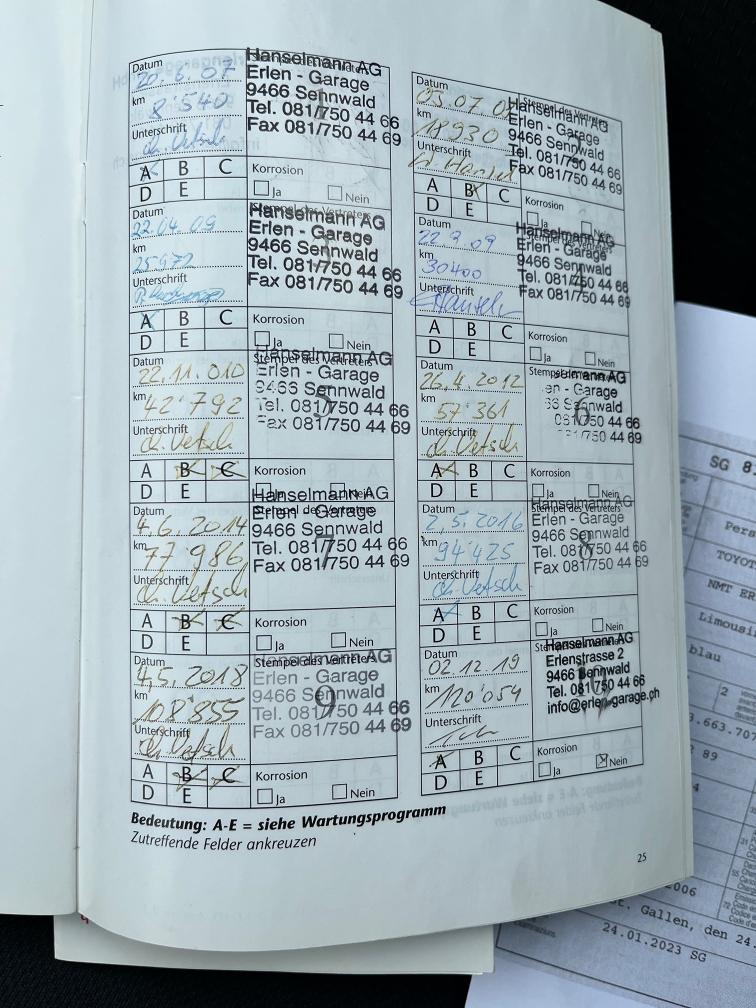 Datum
20.6.07
km
8'540
Unterschrift
Hanselmann AG
Erlen - Garage
9466 Sennwald
Tel. 081/750 44 66
Fax 081/750 44 69
A B C
D E
Korrosion
Ja Nein
Datum
03.07.08
km
18930
Unterschrift
Stempel des Vertreters
Hanselmann AG
Erlen - Garage
9466 Sennwald
Tel. 081/750 44 66
Fax 081/750 44 69
A B C
D E
Datum
22.04.09
km
25972
Unterschrift
Stempel des Vertreters
Hanselmann AG
Erlen - Garage
9466 Sennwald
Tel. 081/750 44 66
Fax 081/750 44 69
A B C
D E
Korrosion
Ja Nein
Datum
km
30400
Unterschrift
Hanselmann AG
Erlen - Garage
9466 Sennwald
Tel. 081/750 44 66
Fax 081/750 44 69
A B C
D E
Korrosion
Ja Nein
Datum
22.11.010
km
42'792
Unterschrift
Stempel des Vertreters
Hanselmann AG
Erlen - Garage
9466 Sennwald
Tel. 081/750 44 66
Fax 081/750 44 69
5
A B C
D E
Korrosion
Ja Nein
Datum
26.4.2012
km
57'361
Unterschrift
6
A B C
D E
Korrosion
Ja Nein
Datum
4.6.2014
km
77'986
Unterschrift
Stempel des Vertreters
Hanselmann AG
Erlen - Garage
9466 Sennwald
Tel. 081/750 44 66
Fax 081/750 44 69
7
A B C
D E
Korrosion
Ja Nein
Datum
2,5.2016
km
94'425
Unterschrift
Stempel des Vertreters
Hanselmann AG
Erlen - Garage
9466 Sennwald
Tel. 081/750 44 66
Fax 081/750 44 69
8
A B C
D E
Korrosion
Ja Nein
Datum
4,5.2018
km
108'855
Unterschrift
Stempel des Vertreters
Hanselmann AG
Erlen - Garage
9466 Sennwald
Tel. 081/750 44 66
Fax 081/750 44 69
9
A B C
D E
Korrosion
Ja Nein
Datum
02.12.19
km
120'054
Unterschrift
Hanselmann AG
Erlenstrasse 2
9466 Sennwald
Tel. 081/750 44 66
info@erlen-garage.ph
A B C
D E
Korrosion
Ja Nein
Bedeutung: A-E = siehe Wartungsprogramm
Zutreffende Felder ankreuzen
25
SG 8
Pers
TOYOT
NMT ER
Limousi
blau
2
3.663.707
89
2006
St. Gallen, den 24.
24.01.2023 SG